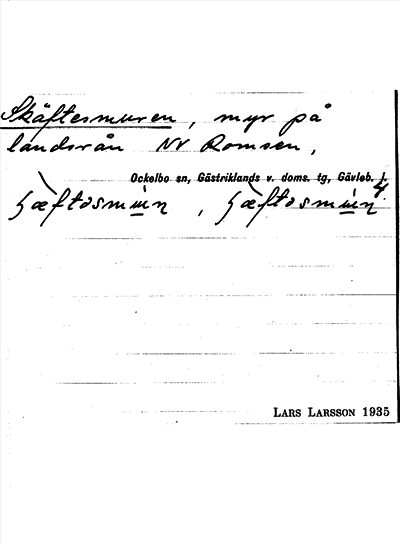 Skäftesmuren, myr på
landsrån NV Romsen,
Ockelbo sn, Gästriklands v. doms. tg, Gävleb. l.
4
LARS LARSSON 1935